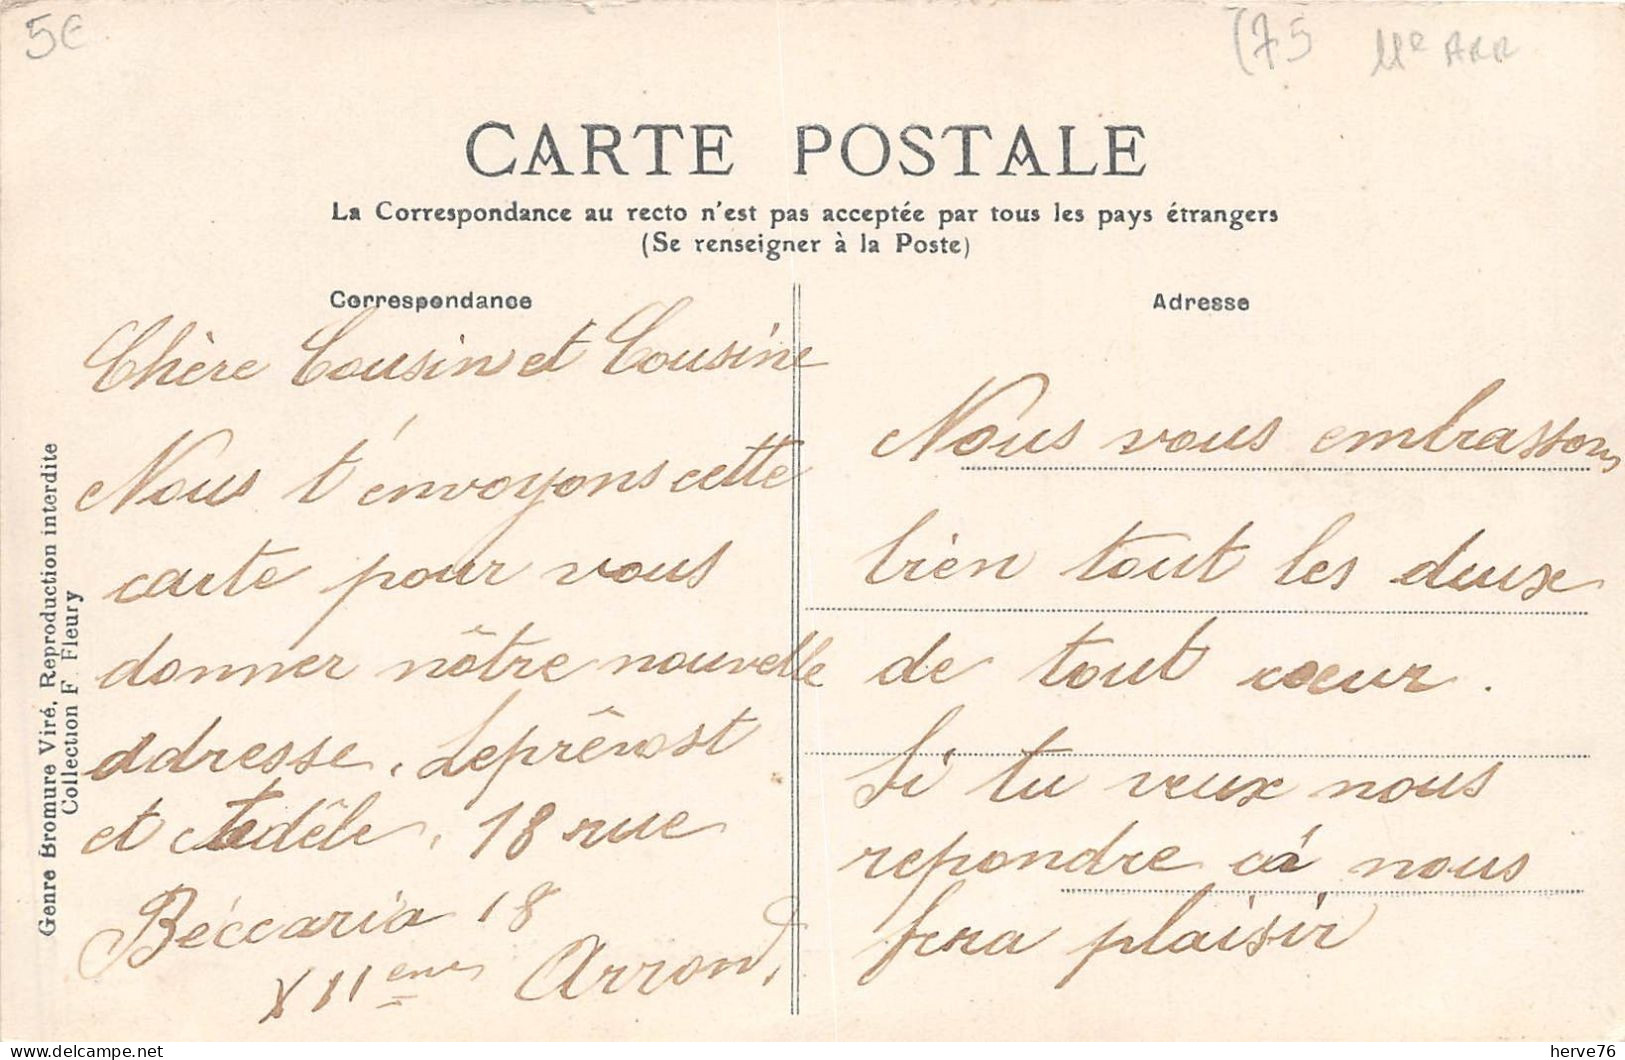 5€
(75 11e ARR
CARTE POSTALE
La Correspondance au recto n'est pas acceptée par tous les pays étrangers
(Se renseigner à la Poste)
Correspondance
Chère Cousin et Cousine
Nous t'envoyons cette
carte pour vous
donner nôtre nouvelle
adresse. Leprêvost
et Adêle, 18 rue
Béccaria 18
XIIeme Arrond.
Adresse
Nous vous embrassons
bien tout les deux
de tout cœur.
Si tu veux nous
repondre cá nous
fera plaisir
Genre Bromure Viré, Reproduction interdite
Collection F. Fleury
delcampe.net
herve76